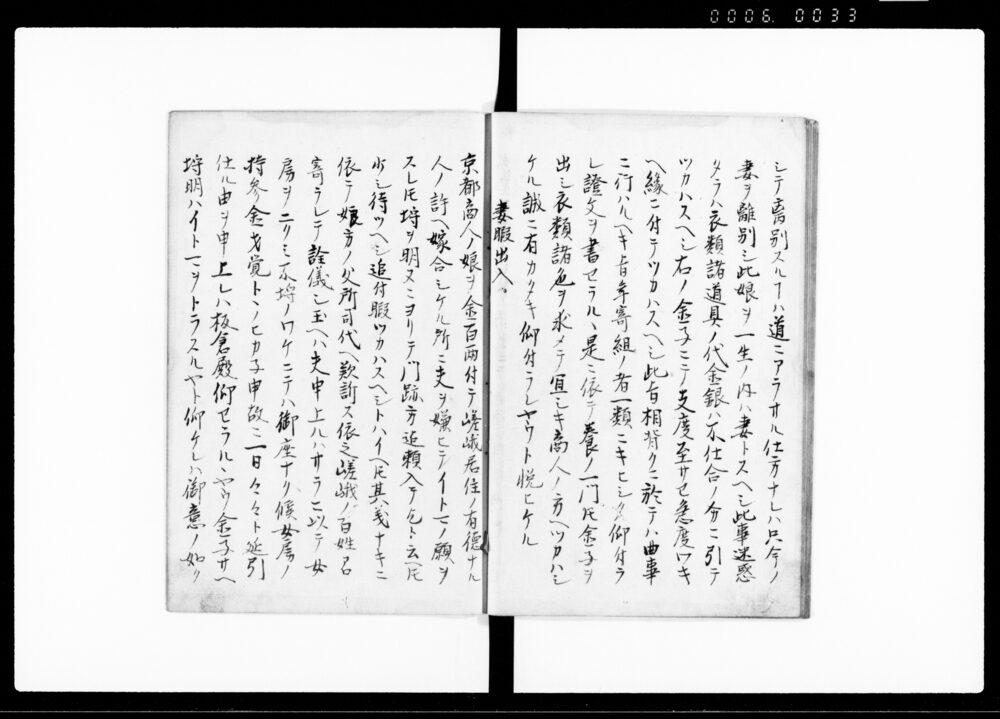 0006. 0033
シテ離別スルヿハ道ニアラサル仕方ナレハ只今ノ
妻ヲ離別シ此娘ヲ一生ノ内ハ妻トスヘシ此事迷惑
タラハ衣類諸道具ノ代金銀ハ不仕合ノ分ニ引テ
ツカハスヘシ右ノ金子ニテ支度至サセ急度ワキ
ヘ縁ニ付テツカハスヘシ此旨相背クニ於テハ曲事
ニ行ハルヘキ旨年寄組ノ者一類ニキヒシク仰付ラ
レ證文ヲ書セラルヽ是ニ依テ養ノ一門𪜈金子ヲ
出シ衣類諸色ヲ求メテ冝シキ商人ノ方ヘツカハシ
ケル誠ニ有カタキ仰付ラレヤウト悦ヒケル
妻暇出入。
京都商人ノ娘ヲ金百両付テ嵯峨居住ノ有德ナル
人ノ許ヘ嫁合シケル所ニ夫ヲ嫌ヒテイトマノ願ヲ
スレ𪜈埒ヲ明又ニヨリテ門跡方迄頼入テ乞ト云ヘ𪜈
少シ待ツヘシ追付暇ツカハスヘシトハイヘ𪜈其義ナキニ
依テ娘方ノ父所司代ヘ歎訴ス依之嵯峨ノ百姓召
寄ラレテ詮儀シ玉ヘハ夫申上ルハサラニ以テ女
房ヲニクミ不埒ノワケニテハ御座ナク候女房ノ
持参金才覚トヽノヒカ子申故ニ一日々々ト延引
仕ル由ヲ申上レハ板倉殿仰セラルヽヤウ金子サヘ
埒明ハイトマヲトラスルヤト仰ケレハ御意ノ如ク